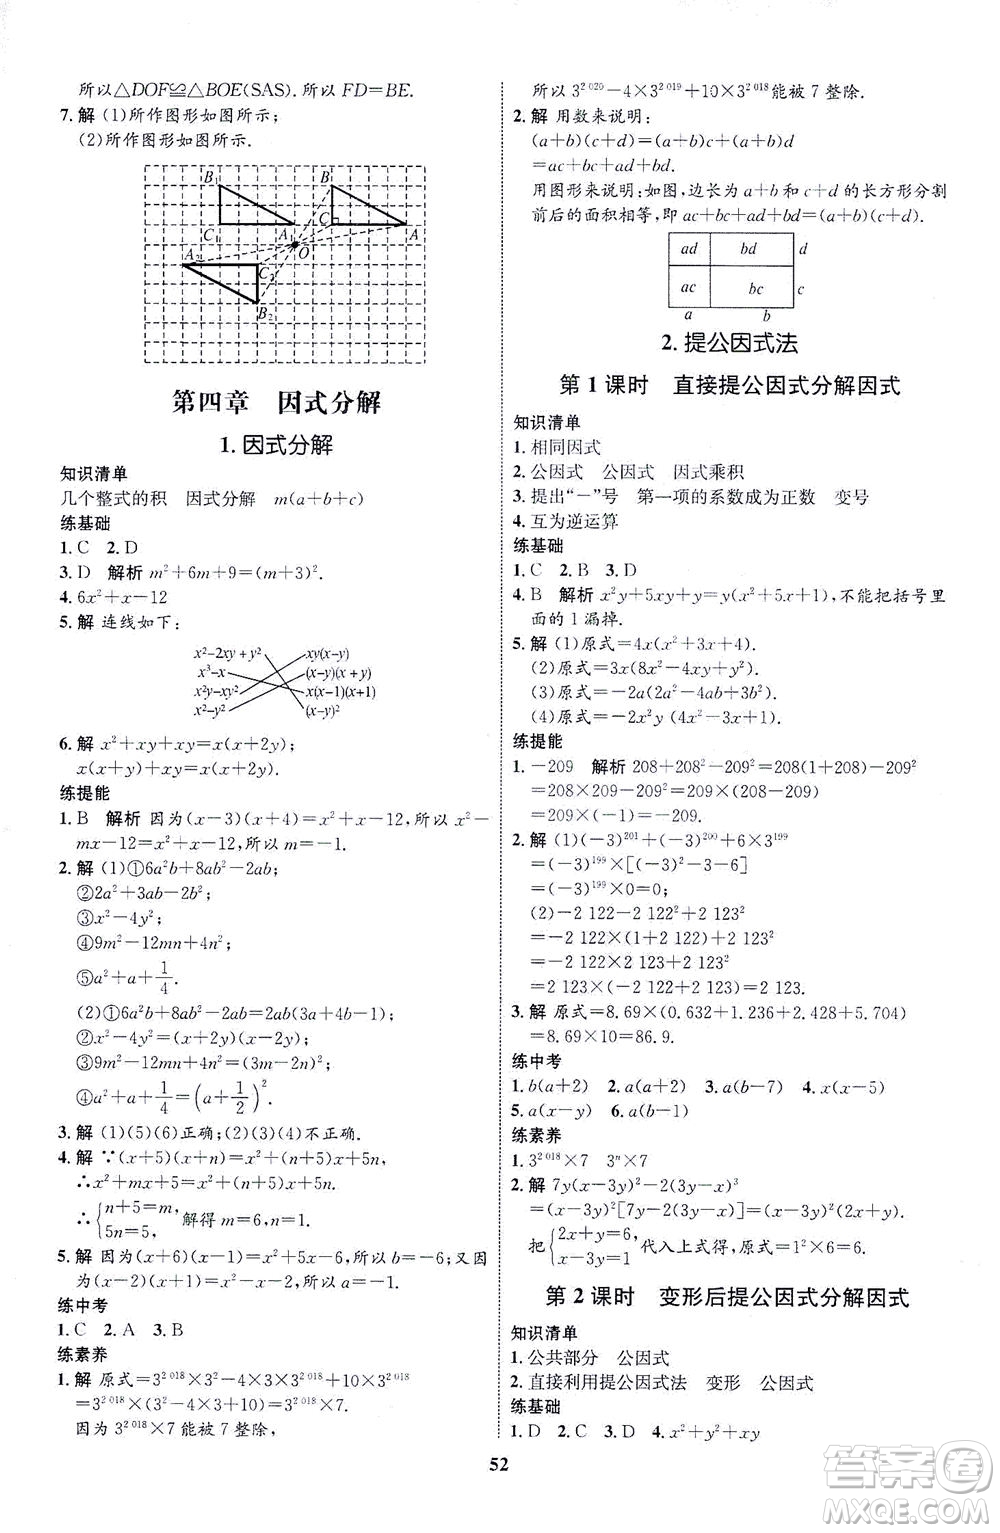 所以△DOF≌△BOE(SAS).所以 FD=BE.
7.解 (1)所作图形如图所示;
(2)所作图形如图所示.
B₁ B
C₁ A₁ C A
A₂ O
C₂
B₂
第四章 因式分解
1.因式分解
知识清单
几个整式的积 因式分解 m(a+b+c)
练基础
1.C 2.D
3.D 解析 m²+6m+9=(m+3)².
4.6x²+x-12
5.解 连线如下:
x²-2xy+y² xy(x-y)
x³-x (x-y)(x+y)
x²y-xy² x(x-1)(x+1)
x²-y² (x-y)²
6.解 x²+xy+xy=x(x+2y);
x(x+y)+xy=x(x+2y).
练提能
1.B 解析 因为(x-3)(x+4)=x²+x-12,所以 x²-
mx-12=x²+x-12,所以 m=-1.
2.解 (1)①6a²b+8ab²-2ab;
②2a²+3ab-2b²;
③x²-4y²;
④9m²-12mn+4n²;
⑤a²+a+1/4.
(2)①6a²b+8ab²-2ab=2ab(3a+4b-1);
②x²-4y²=(x-2y)(x+2y);
③9m²-12mn+4n²=(3m-2n)²;
④a²+a+1/4=(a+1/2)².
3.解 (1)(5)(6)正确;(2)(3)(4)不正确.
4.解 ∵(x+5)(x+n)=x²+(n+5)x+5n,
∴x²+mx+5=x²+(n+5)x+5n,
∴{n+5=m, 5n=5, 解得 m=6,n=1.
5.解 因为(x+6)(x-1)=x²+5x-6,所以 b=-6;又因
为(x-2)(x+1)=x²-x-2,所以 a=-1.
练中考
1.C 2.A 3.B
练素养
1.解 原式=3²⁰¹⁸×3²-4×3×3²⁰¹⁸+10×3²⁰¹⁸
=3²⁰¹⁸×(3²-4×3+10)=3²⁰¹⁸×7.
因为 3²⁰¹⁸×7 能被 7 整除,
所以 3²⁰²⁰-4×3²⁰¹⁹+10×3²⁰¹⁸能被 7 整除.
2.解 用数来说明:
(a+b)(c+d)=(a+b)c+(a+b)d
=ac+bc+ad+bd.
用图形来说明:如图,边长为 a+b 和 c+d 的长方形分割
前后的面积相等,即 ac+bc+ad+bd=(a+b)(c+d).
ad bd d
ac bc c
a b
2.提公因式法
第 1 课时 直接提公因式分解因式
知识清单
1.相同因式
2.公因式 公因式 因式乘积
3.提出“-”号 第一项的系数成为正数 变号
4.互为逆运算
练基础
1.C 2.B 3.D
4.B 解析 x²y+5xy+y=y(x²+5x+1),不能把括号里
面的 1 漏掉.
5.解 (1)原式=4x(x²+3x+4).
(2)原式=3x(8x²-4xy+9y²).
(3)原式=-2a(2a²-4ab+3b²).
(4)原式=-2x²y (4x²-x+1).
练提能
1.-209 解析 208+208²-209²=208×(1+208)-209²
=208×209-209²=209×(208-209)
=209×(-1)=-209.
2.解 (1)(-3)²⁰¹+(-3)²⁰⁰+6×3¹⁹⁹
=(-3)¹⁹⁹×[(-3)²-3-6]
=(-3)¹⁹⁹×0=0;
(2)-2 122-2 122²+2 123²
=-2 122×(1+2 122)+2 123²
=-2 122×2 123+2 123²
=2 123×(-2 122+2 123)=2 123.
3.解 原式=8.69×(0.632+1.236+2.428+5.704)
=8.69×10=86.9.
练中考
1.b(a+2) 2.a(a+2) 3.a(b-7) 4.x(x-5)
5.a(x-y) 6.a(b-1)
练素养
1.3²⁰¹⁸×7 3ⁿ×7
2.解 7y(x-3y)²-2(3y-x)³
=(x-3y)²[7y-2(3y-x)]=(x-3y)²(2x+y).
把{2x+y=6, x-3y=1 代入上式得,原式=1²×6=6.
第 2 课时 变形后提公因式分解因式
知识清单
1.公共部分 公因式
2.直接利用提公因式法 变形 公因式
练基础
1.D 2.C 3.D 4.x²+y²+xy
52
答案圈
MXQE.COM